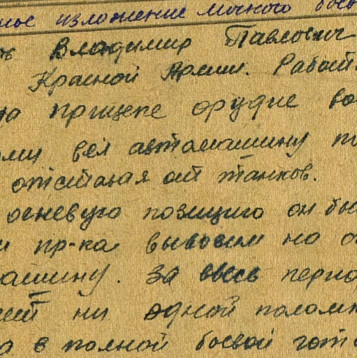 ное изложение личного бое
Владимир Павлович
Красной Армии. Работ
на прицепе орудие во
ми вёл автомашину п
отставая от танков.
огневую позицию он бы
и пр-ка вывозил на
ашину. За весь перио
ни одной полом
а в полной боевой гото